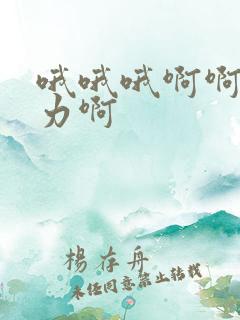 哦哦哦啊啊
力啊
楊存舟
未经同意禁止转载